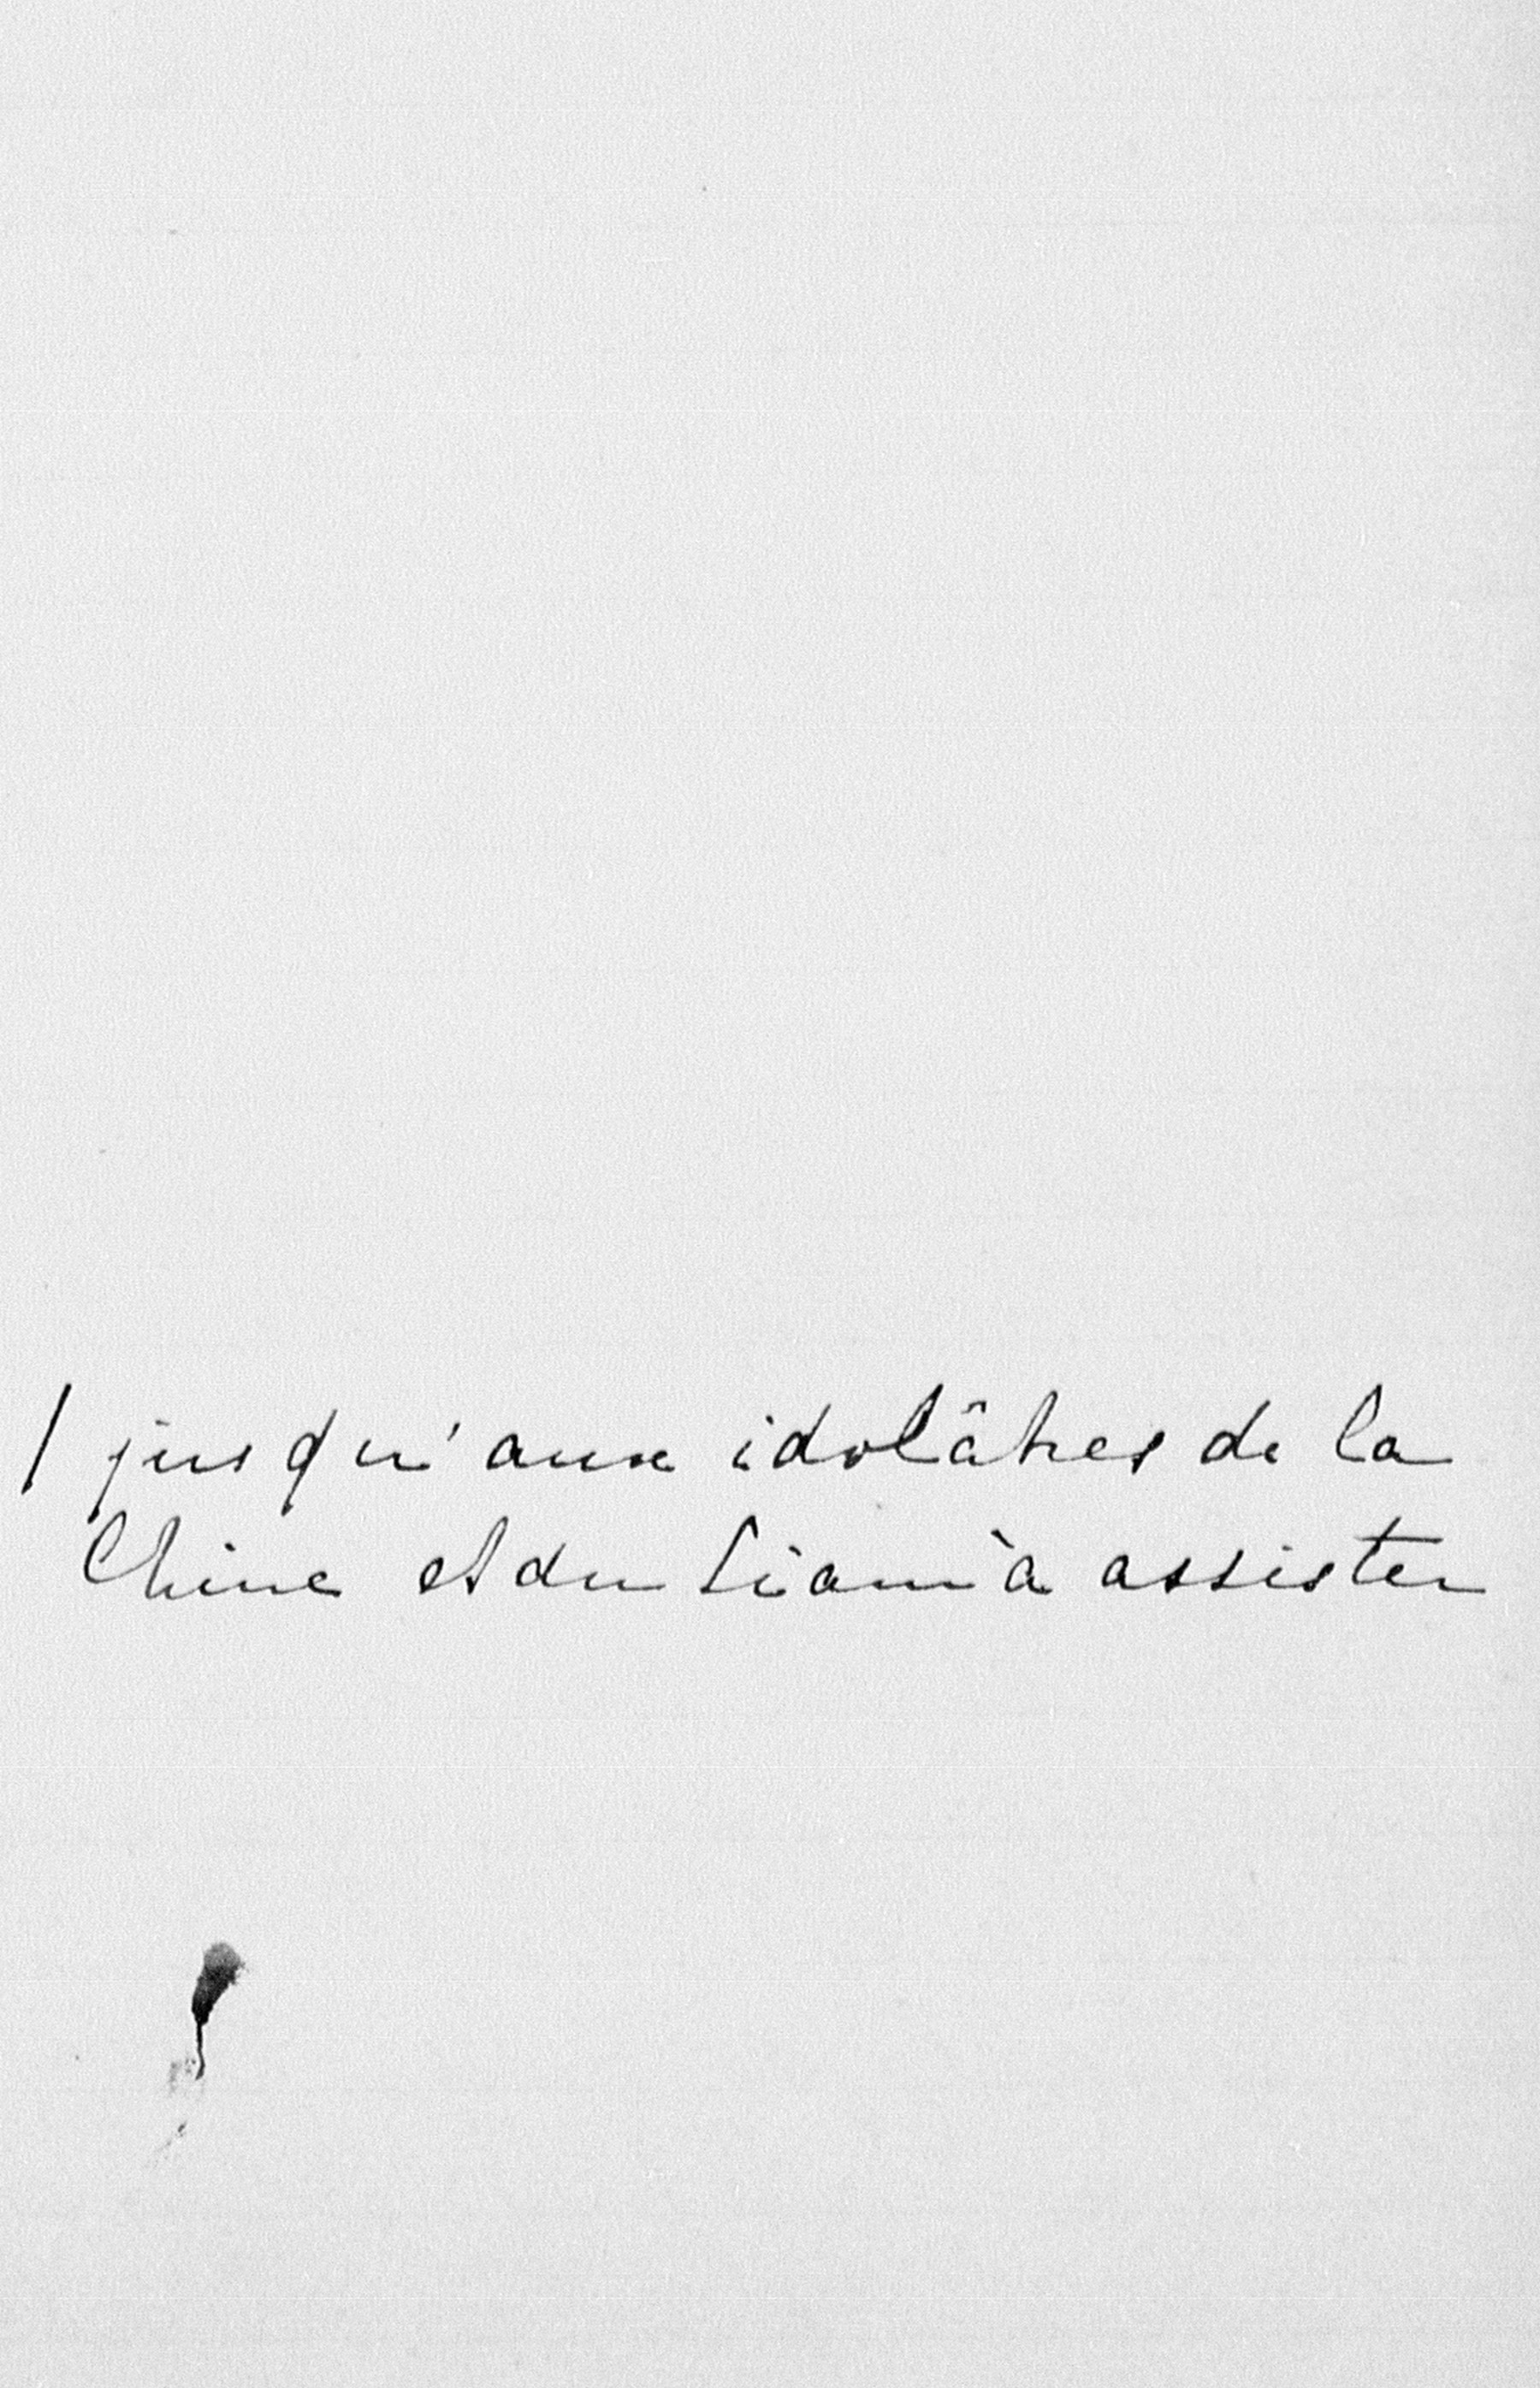 / jusqu'aux idolâtres de la
Chine et du Siam à assister